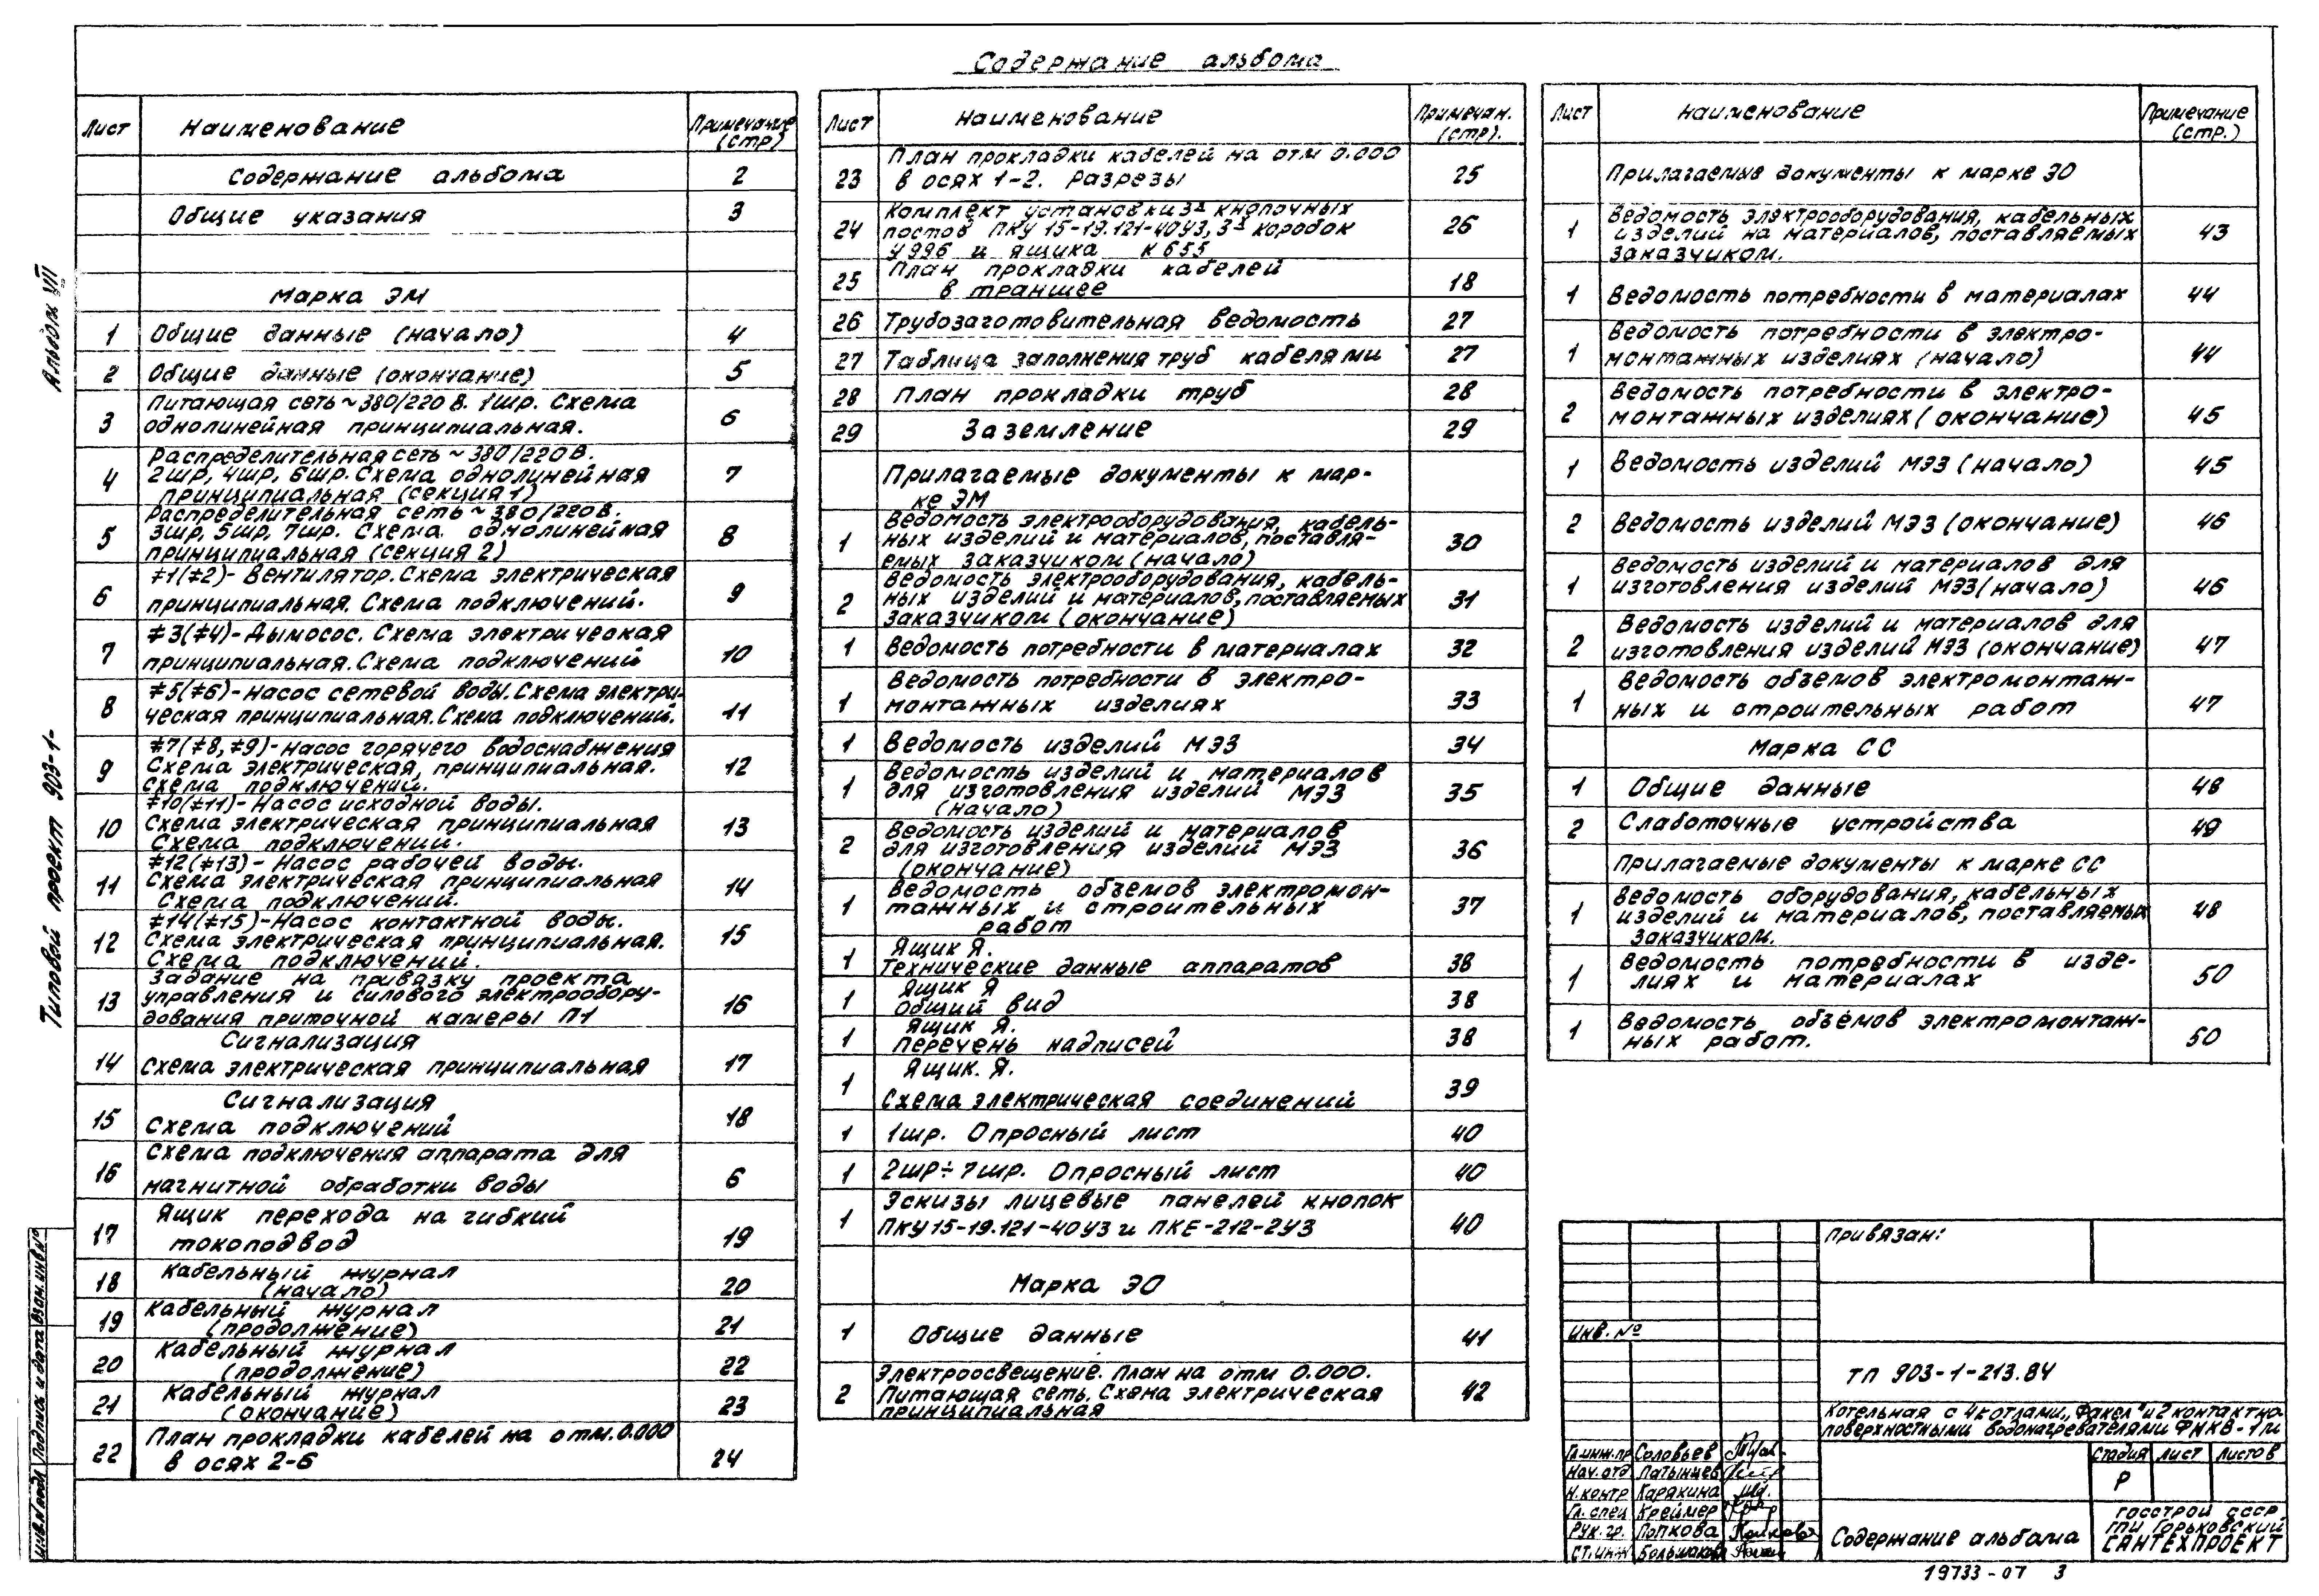 Содержание альбома
Лист Наименование Примечание (стр)
Содержание альбома 2
Общие указания 3
Марка ЭМ
1 Общие данные (начало) 4
2 Общие данные (окончание) 5
Питающая сеть ~380/220 В. 1шр. Схема
3 однолинейная принципиальная. 6
Распределительная сеть ~380/220В.
4 2шр, 4шр, 6шр. Схема однолинейная 7
принципиальная (секция 1)
Распределительная сеть ~380/220В.
5 3шр, 5шр, 7шр. Схема однолинейная 8
принципиальная (секция 2)
≠1(≠2)- Вентилятор. Схема электрическая
6 принципиальная. Схема подключений. 9
≠3(≠4)- Дымосос. Схема электрическая
7 принципиальная. Схема подключений 10
≠5(≠6)- Насос сетевой воды. Схема электри-
8 ческая принципиальная. Схема подключений. 11
≠7(≠8, ≠9)- Насос горячего водоснабжения
9 Схема электрическая, принципиальная. 12
Схема подключений.
≠10(≠11)- Насос исходной воды.
10 Схема электрическая принципиальная 13
Схема подключений.
≠12(≠13)- Насос рабочей воды.
11 Схема электрическая принципиальная 14
Схема подключений.
≠14(≠15)- Насос контактной воды.
12 Схема электрическая принципиальная. 15
Схема подключений.
Задание на привязку проекта
13 управления и силового электрообору- 16
дования приточной камеры П1
Сигнализация
14 Схема электрическая принципиальная 17
Сигнализация
15 Схема подключений 18
Схема подключения аппарата для
16 магнитной обработки воды 6
Ящик перехода на гибкий
17 токоподвод 19
Кабельный журнал
18 (начало) 20
Кабельный журнал
19 (продолжение) 21
Кабельный журнал
20 (продолжение) 22
Кабельный журнал
21 (окончание) 23
План прокладки кабелей на отм. 0.000
22 в осях 2-6 24
Лист Наименование Примечан. (стр).
План прокладки кабелей на отм 0.000
23 в осях 1-2. Разрезы 25
Комплект установки 3х кнопочных
24 постов ПКУ 15-19.121-40У3, 3х коробок 26
У996 и ящика К655
План прокладки кабелей
25 в траншее 18
26 Трубозаготовительная ведомость 27
27 Таблица заполнения труб кабелями 27
28 План прокладки труб 28
29 Заземление 29
Прилагаемые документы к мар-
ке ЭМ
Ведомость электрооборудования, кабель-
1 ных изделий и материалов, поставля- 30
емых заказчиком (начало)
Ведомость электрооборудования, кабель-
2 ных изделий и материалов, поставляемых 31
заказчиком (окончание)
1 Ведомость потребности в материалах 32
Ведомость потребности в электро-
1 монтажных изделиях 33
1 Ведомость изделий МЭЗ 34
Ведомость изделий и материалов
1 для изготовления изделий МЭЗ 35
(начало)
Ведомость изделий и материалов
2 для изготовления изделий МЭЗ 36
(окончание)
Ведомость объемов электромон-
1 тажных и строительных 37
работ
Ящик Я.
1 Технические данные аппаратов 38
Ящик Я
1 Общий вид 38
Ящик Я.
1 Перечень надписей 38
Ящик. Я.
1 Схема электрическая соединений 39
1 1шр. Опросный лист 40
1 2шр÷7шр. Опросный лист 40
Эскизы лицевые панелей кнопок
1 ПКУ15-19.121-40У3 и ПКЕ-212-2У3 40
Марка ЭО
1 Общие данные 41
Электроосвещение. План на отм 0.000.
2 Питающая сеть. Схема электрическая 42
принципиальная
Лист Наименование Примечание (стр.)
Прилагаемые документы к марке ЭО
Ведомость электрооборудования, кабельных
1 изделий на материалов, поставляемых 43
заказчиком.
1 Ведомость потребности в материалах 44
Ведомость потребности в электро-
1 монтажных изделиях (начало) 44
Ведомость потребности в электро-
2 монтажных изделиях (окончание) 45
1 Ведомость изделий МЭЗ (начало) 45
2 Ведомость изделий МЭЗ (окончание) 46
Ведомость изделий и материалов для
1 изготовления изделий МЭЗ (начало) 46
Ведомость изделий и материалов для
2 изготовления изделий МЭЗ (окончание) 47
Ведомость объемов электромонтаж-
1 ных и строительных работ 47
Марка СС
1 Общие данные 48
2 Слаботочные устройства 49
Прилагаемые документы к марке СС
Ведомость оборудования, кабельных
1 изделий и материалов, поставляемых 48
заказчиком.
Ведомость потребности в изде-
1 лиях и материалах 50
Ведомость объемов электромонтаж-
1 ных работ. 50
Альбом VII
Типовой проект 903-1-
Инв.№ подл Подпись и дата Взам. инв №
Привязан:
Инв. №
ТП 903-1-213.84
Котельная с 4 котлами „Факел" и 2 контактно-
поверхностными водонагревателями ФНКВ-1м
Гл.инж.пр Соловьев
Нач.отд Латынцев
Н.контр Карякина
Гл. спец Креймер
Рук. гр. Попкова
Ст.инж Большакова
Стадия Лист Листов
Р
Содержание альбома
Госстрой СССР
ГПИ Горьковский
Сантехпроект
19733-07 3